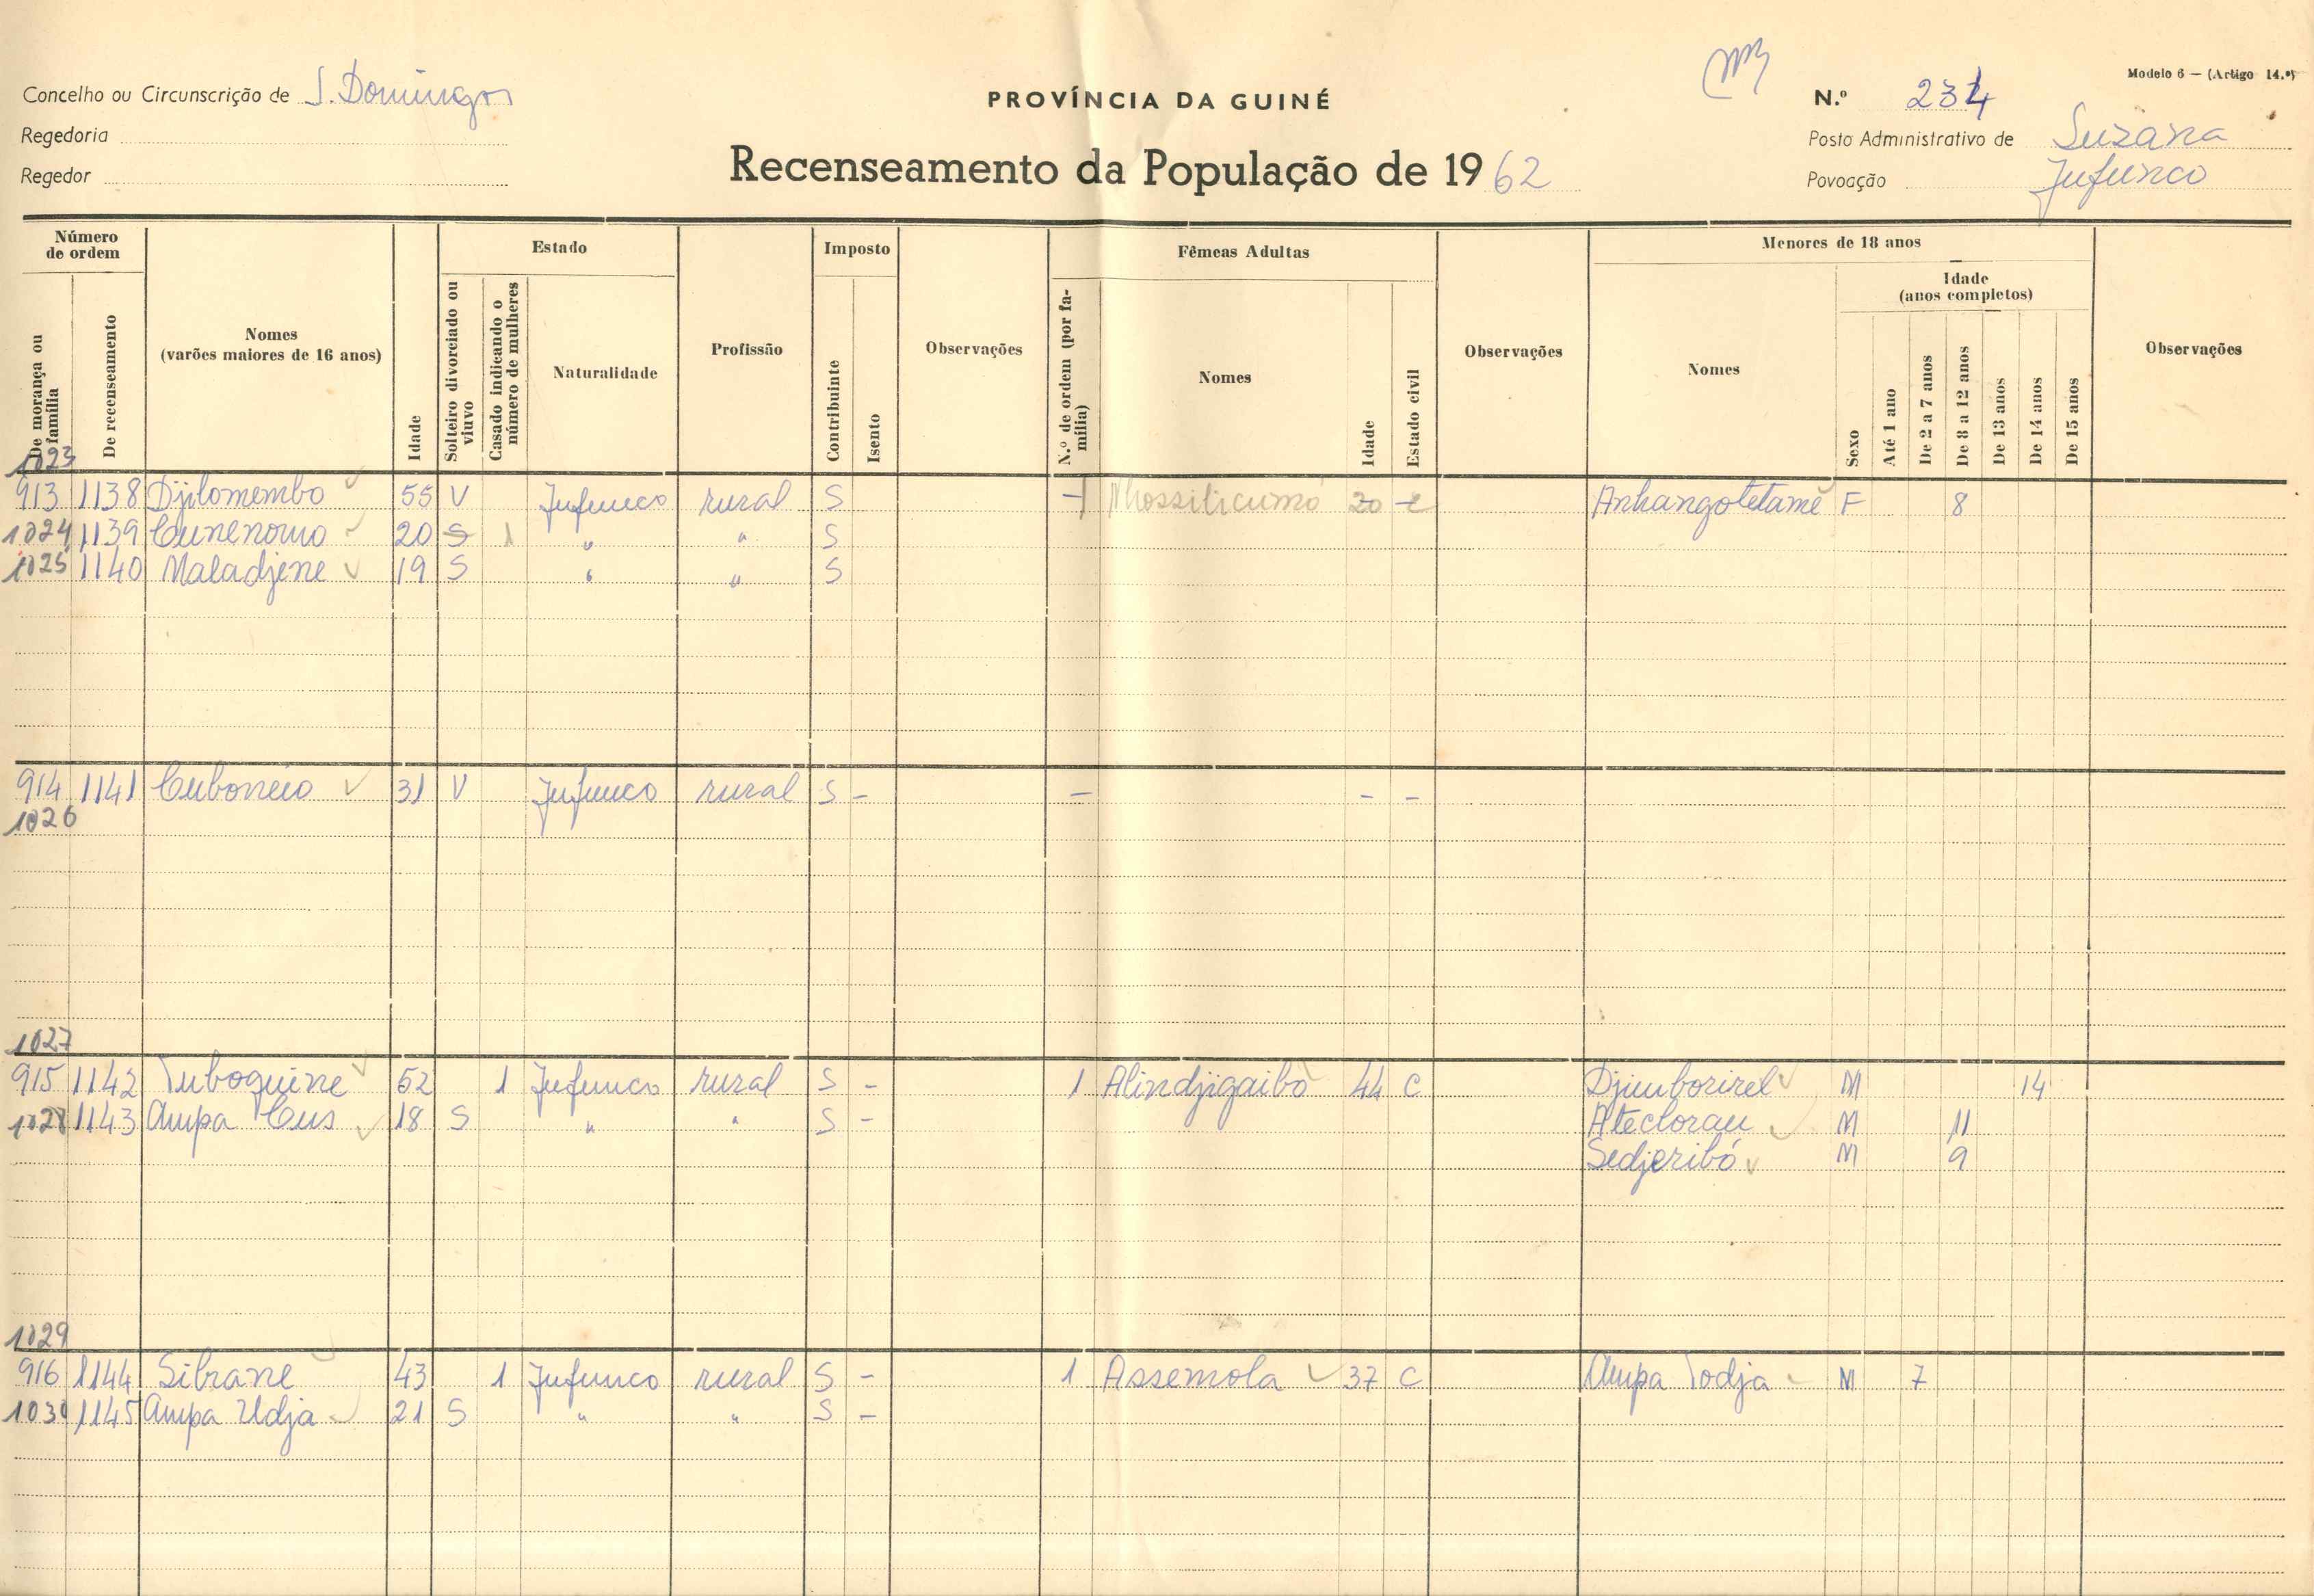 Modelo 6 — (Artigo 14.º)
Concelho ou Circunscrição de S. Domingos
PROVÍNCIA DA GUINÉ
N.º 234
Regedoria
Posto Administrativo de Suzana
Regedor
Recenseamento da População de 1962
Povoação Jufunco
Número de ordem
Estado
Imposto
Fêmeas Adultas
Menores de 18 anos
Idade (anos completos)
De morança ou família
De recenseamento
Nomes (varões maiores de 16 anos)
Idade
Solteiro divorciado ou viuvo
Casado indicando o número de mulheres
Naturalidade
Profissão
Contribuinte
Isento
Observações
N.º de ordem (por família)
Nomes
Idade
Estado civil
Observações
Nomes
Sexo
Até 1 ano
De 2 a 7 anos
De 8 a 12 anos
De 13 anos
De 14 anos
De 15 anos
Observações
1023
913 1138 Djilomembo 55 V Jufunco rural S - 1 Nhossilicumó 20 c Anhangotetame F 8
1024 1139 Cunenomo 20 S 1 " " S
1025 1140 Maladjene 19 S " " S
914 1141 Cuboneio 31 V Jufunco rural S - - - -
1026
1027
915 1142 Tuboguine 52 1 Jufunco rural S - 1 Alindjigaibo 44 C Djimborirel M 14
1028 1143 Ampa Cus 18 S " " S - Atecloran M 11
Sedjeribó M 9
1029
916 1144 Sibrane 43 1 Jufunco rural S - 1 Assemola 37 C Ampa Todja M 7
1030 1145 Ampa Udja 21 S " " S -